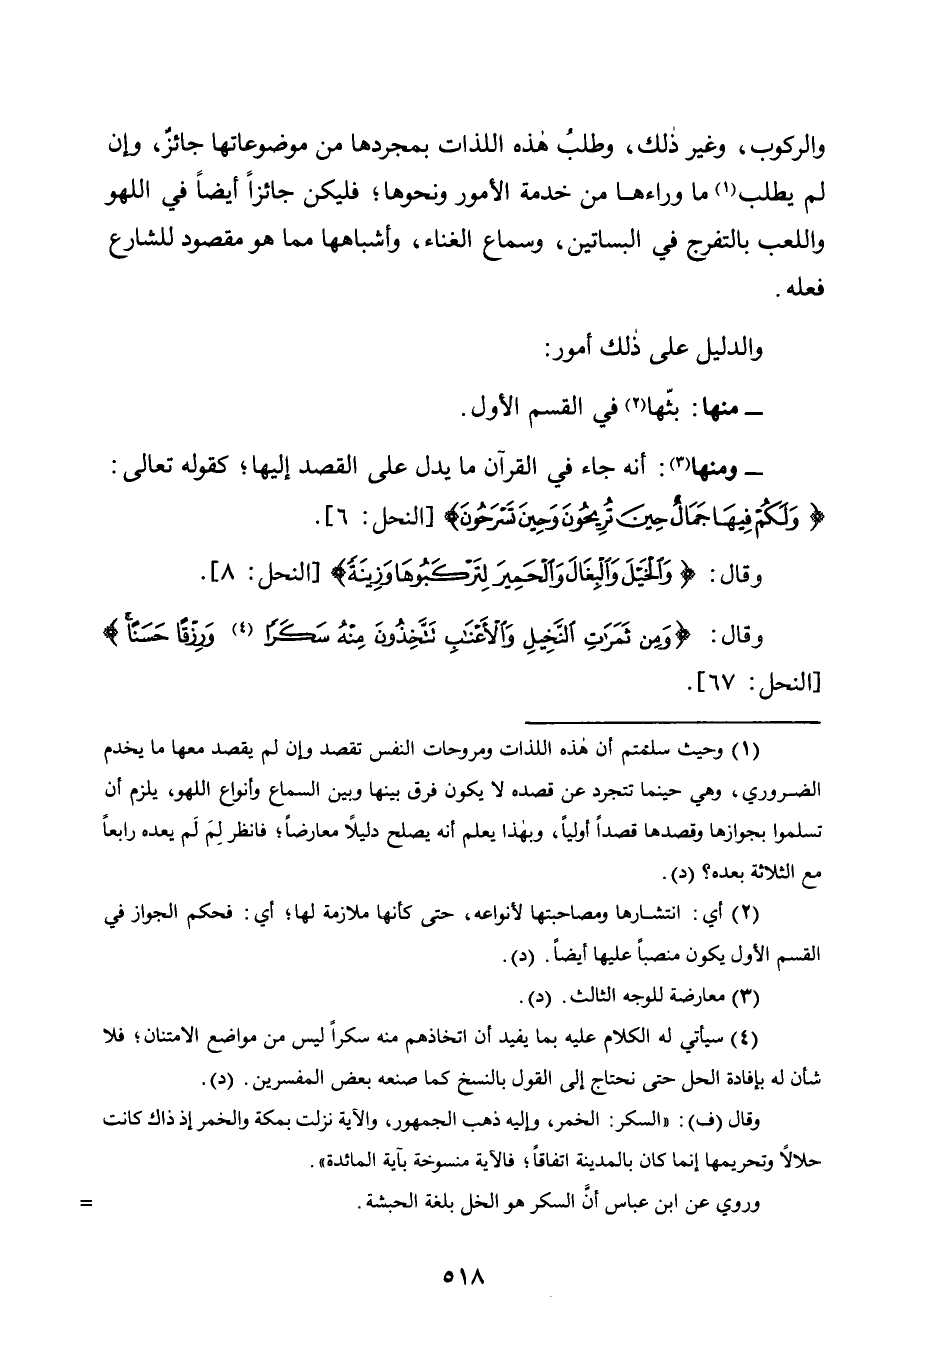 والركوب، وغير ذٰلك، وطلبُ هٰذه اللذات بمجردها من موضوعاتها جائزٌ، وإن
لم يطلب(١) ما وراءهـا من خدمة الأمور ونحوها؛ فليكن جائزاً أيضاً في اللهو
واللعب بالتفرج في البساتين، وسماع الغناء، وأشباهها مما هو مقصود للشارع
فعله.
والدليل على ذٰلك أمور:
ـ منها: بثّها(٢) في القسم الأول.
ـ ومنها(٣): أنه جاء في القرآن ما يدل على القصد إليها؛ كقوله تعالى:
﴿وَلَكُمْ فِيهَا جَمَالٌ حِينَ تُرِيحُونَ وَحِينَ تَسْرَحُونَ﴾ [النحل: ٦].
وقال: ﴿وَٱلْخَيْلَ وَٱلْبِغَالَ وَٱلْحَمِيرَ لِتَرْكَبُوهَا وَزِينَةً﴾ [النحل: ٨].
وقال: ﴿وَمِن ثَمَرَٰتِ ٱلنَّخِيلِ وَٱلْأَعْنَٰبِ تَتَّخِذُونَ مِنْهُ سَكَرًا (٤) وَرِزْقًا حَسَنًاۗ﴾
[النحل: ٦٧].
(١) وحيث سلمتم أن هٰذه اللذات ومروحات النفس تقصد وإن لم يقصد معها ما يخدم
الضروري، وهي حينما تتجرد عن قصده لا يكون فرق بينها وبين السماع وأنواع اللهو، يلزم أن
تسلموا بجوازها وقصدها قصداً أولياً، وبهٰذا يعلم أنه يصلح دليلًا معارضاً؛ فانظر لِمَ لَم يعده رابعاً
مع الثلاثة بعده؟ (د).
(٢) أي: انتشارها ومصاحبتها لأنواعه، حتى كأنها ملازمة لها؛ أي: فحكم الجواز في
القسم الأول يكون منصباً عليها أيضاً. (د).
(٣) معارضة للوجه الثالث. (د).
(٤) سيأتي له الكلام عليه بما يفيد أن اتخاذهم منه سكراً ليس من مواضع الامتنان؛ فلا
شأن له بإفادة الحل حتى نحتاج إلى القول بالنسخ كما صنعه بعض المفسرين. (د).
وقال (ف): «السكر: الخمر، وإليه ذهب الجمهور، والآية نزلت بمكة والخمر إذ ذاك كانت
حلالًا وتحريمها إنما كان بالمدينة اتفاقاً؛ فالآية منسوخة بآية المائدة».
وروي عن ابن عباس أنَّ السكر هو الخل بلغة الحبشة. =
٥١٨